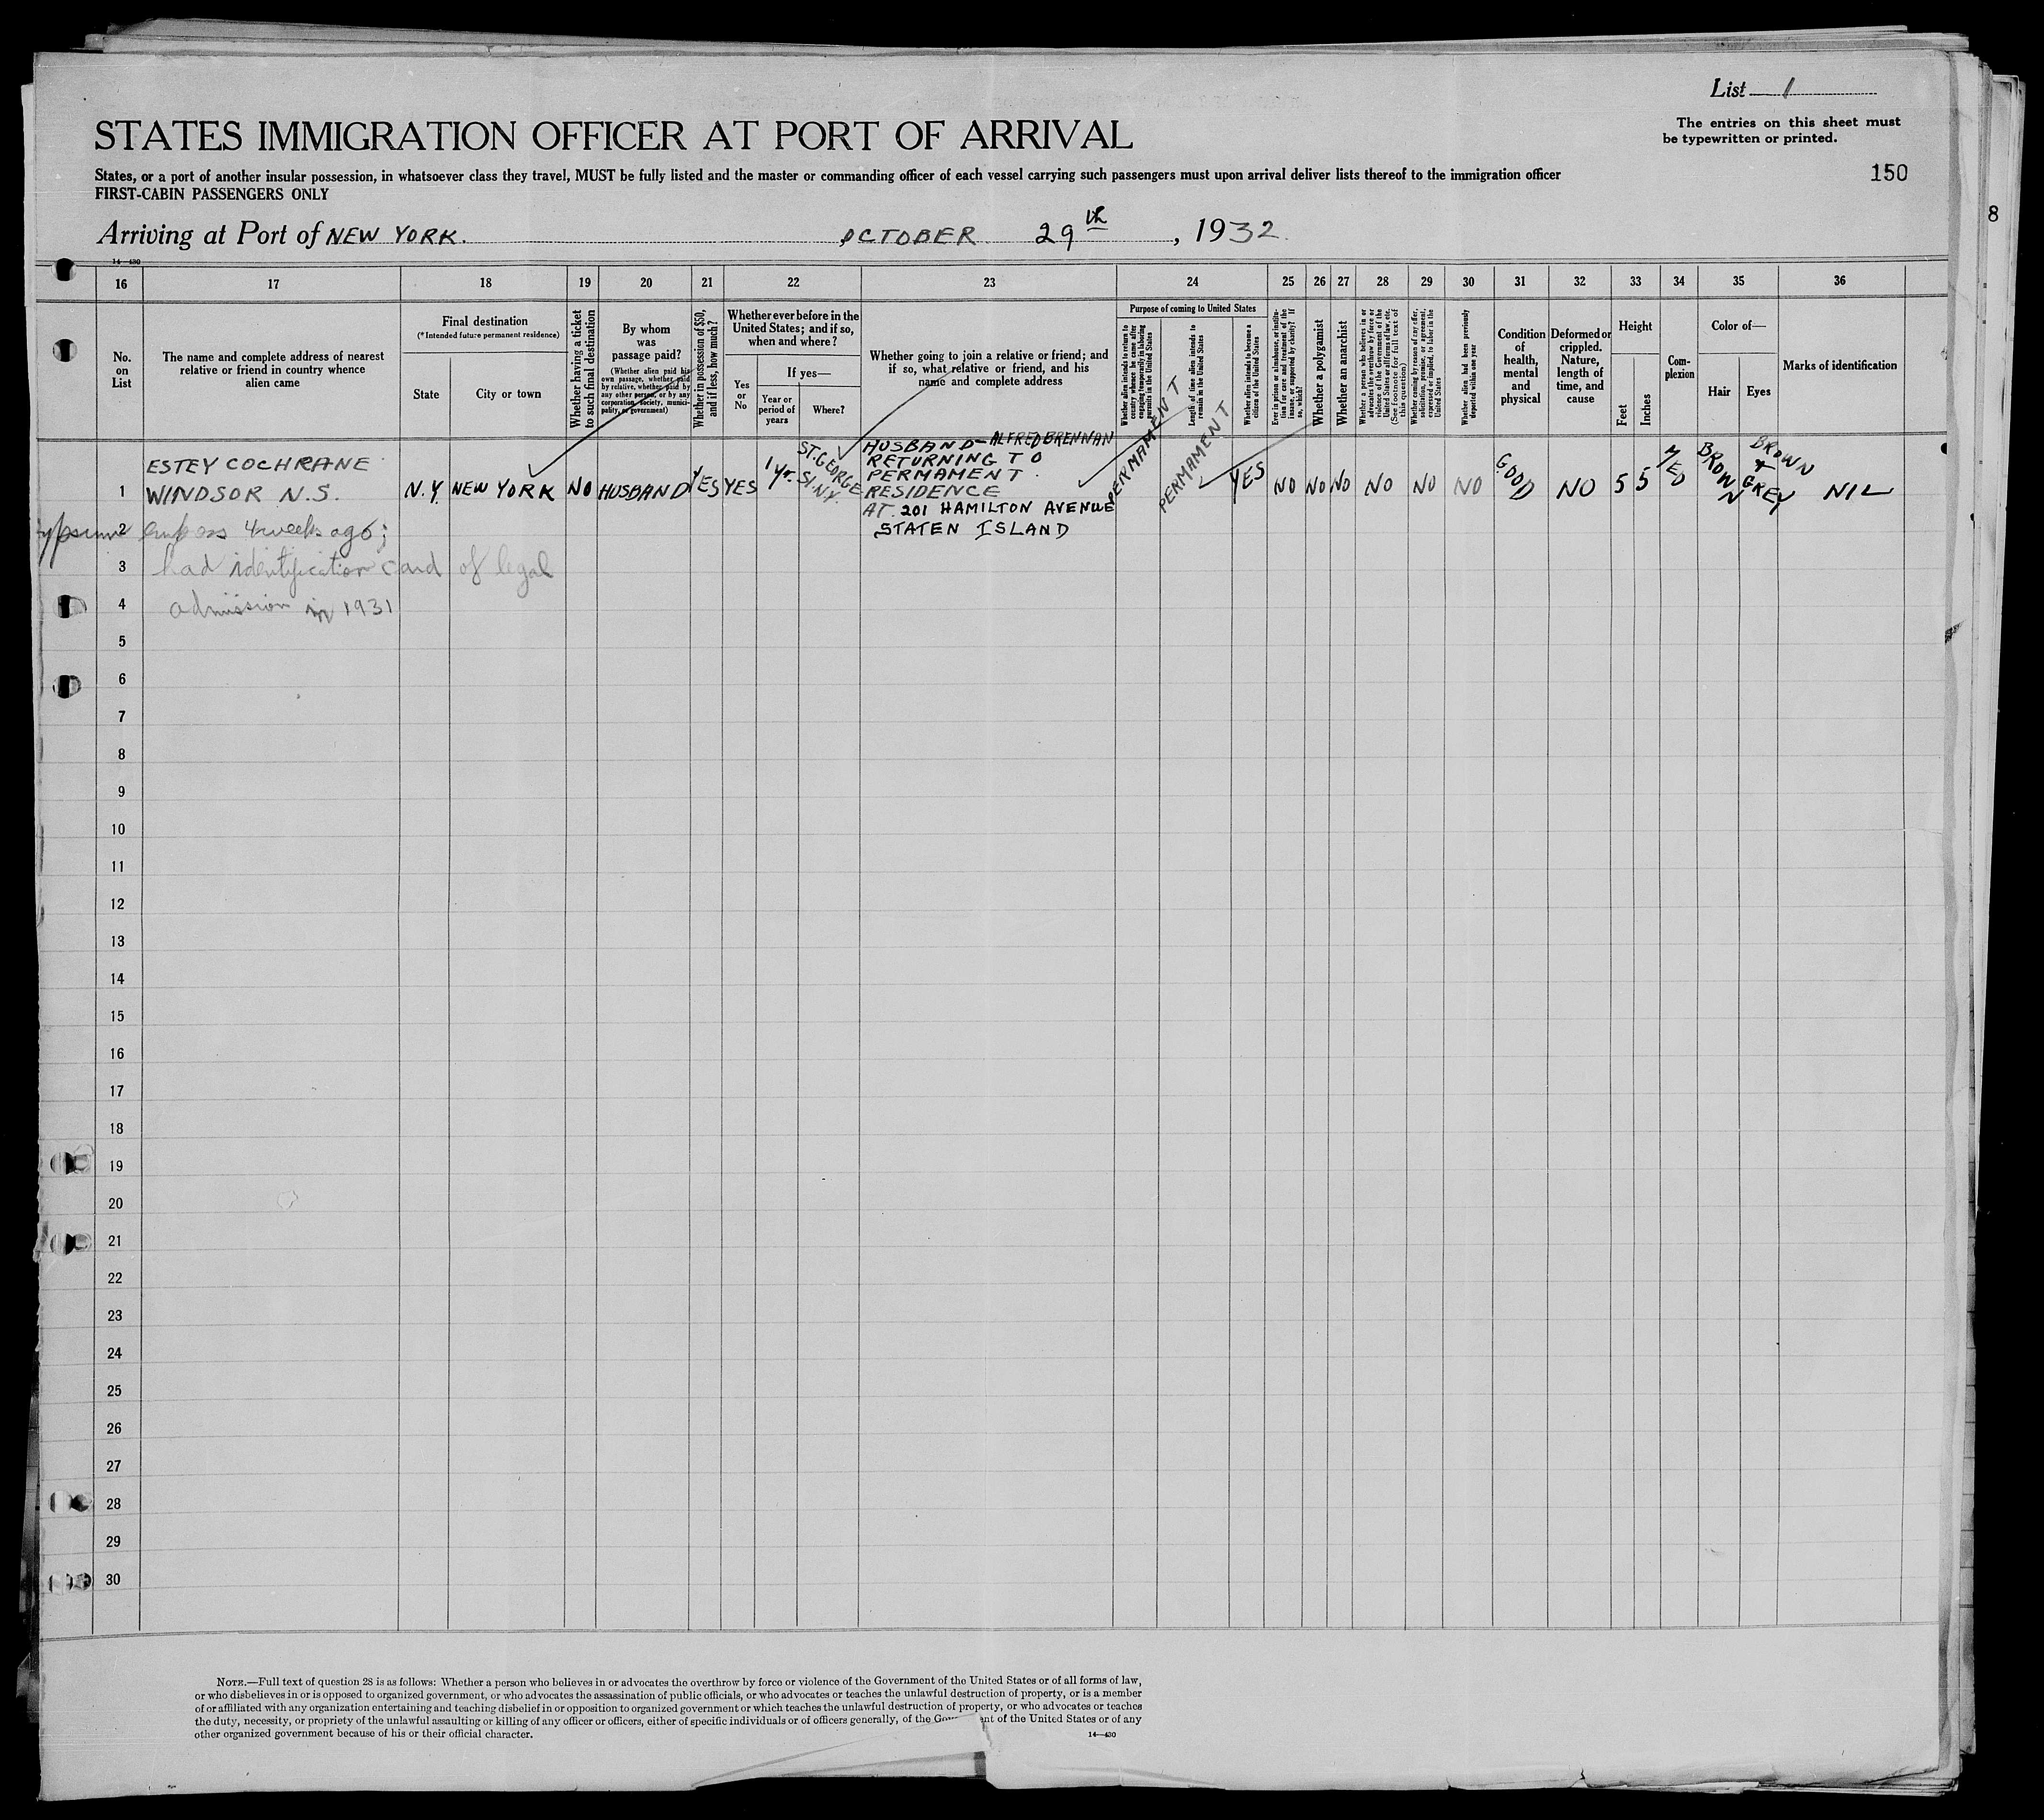 List 1
The entries on this sheet must
be typewritten or printed.
STATES IMMIGRATION OFFICER AT PORT OF ARRIVAL
150
States, or a port of another insular possession, in whatsoever class they travel, MUST be fully listed and the master or commanding officer of each vessel carrying such passengers must upon arrival deliver lists thereof to the immigration officer
FIRST-CABIN PASSENGERS ONLY
8
Arriving at Port of NEW YORK. OCTOBER 29th, 1932
14—430
16 17 18 19 20 21 22 23 24 25 26 27 28 29 30 31 32 33 34 35 36
No.
on
List
The name and complete address of nearest
relative or friend in country whence
alien came
Final destination
(*Intended future permanent residence)
State
City or town
Whether having a ticket
to such final destination
By whom
was
passage paid?
(Whether alien paid his
own passage, whether paid
by relative, whether paid by
any other person, or by any
corporation, society, munici-
pality, or government)
Whether in possession of $50,
and if less, how much?
Whether ever before in the
United States; and if so,
when and where?
Yes
or
No
If yes—
Year or
period of
years
Where?
Whether going to join a relative or friend; and
if so, what relative or friend, and his
name and complete address
Purpose of coming to United States
Whether alien intends to return to
country whence he came after
engaging temporarily in laboring
pursuits in the United States
Length of time alien intends to
remain in the United States
Whether alien intends to become a
citizen of the United States
Ever in prison or almshouse, or institu-
tion for care and treatment of the
insane, or supported by charity? If
so, which?
Whether a polygamist
Whether an anarchist
Whether a person who believes in or
advocates the overthrow by force or
violence of the Government of the
United States or all forms of law, etc.
(See footnote for full text of
this question)
Whether coming by reason of any offer,
solicitation, promise, or agreement,
expressed or implied, to labor in the
United States
Whether alien had been previously
deported within one year
Condition
of
health,
mental
and
physical
Deformed or
crippled.
Nature,
length of
time, and
cause
Height
Feet
Inches
Com-
plexion
Color of—
Hair
Eyes
Marks of identification
1
ESTEY COCHRANE
WINDSOR N.S.
N.Y. NEW YORK NO HUSBAND YES YES 1 yr.
ST. GEORGE
S.I. N.Y.
HUSBAND - ALFRED BRENNAN
RETURNING TO
PERMAMENT
RESIDENCE
AT 201 HAMILTON AVENUE
STATEN ISLAND
PERMAMENT
PERMAMENT
YES NO NO NO NO NO NO GOOD NO 5 5 MED BROWN
BROWN
+
GREY
NIL
2 4 weeks ago;
3 had identification card of legal
4 admission in 1931
5
6
7
8
9
10
11
12
13
14
15
16
17
18
19
20
21
22
23
24
25
26
27
28
29
30
NOTE.—Full text of question 28 is as follows: Whether a person who believes in or advocates the overthrow by force or violence of the Government of the United States or of all forms of law,
or who disbelieves in or is opposed to organized government, or who advocates the assassination of public officials, or who advocates or teaches the unlawful destruction of property, or is a member
of or affiliated with any organization entertaining and teaching disbelief in or opposition to organized government or which teaches the unlawful destruction of property, or who advocates or teaches
the duty, necessity, or propriety of the unlawful assaulting or killing of any officer or officers, either of specific individuals or of officers generally, of the Gov ent of the United States or of any
other organized government because of his or their official character.
14—430